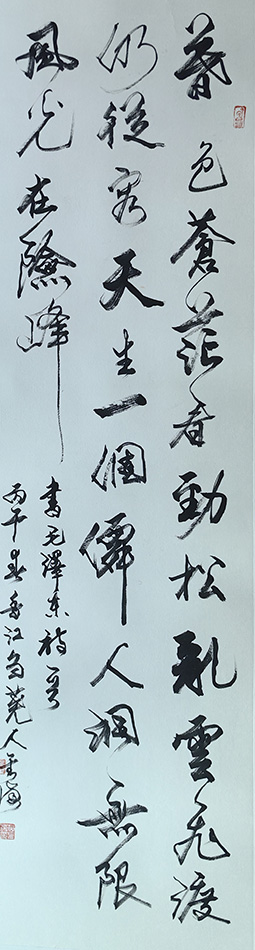 暮色蒼茫看勁松亂雲飛渡
仍從容天生一個僊人洞無限
風光在險峰
書毛澤東詩一首
丙午春香江芻蕘人